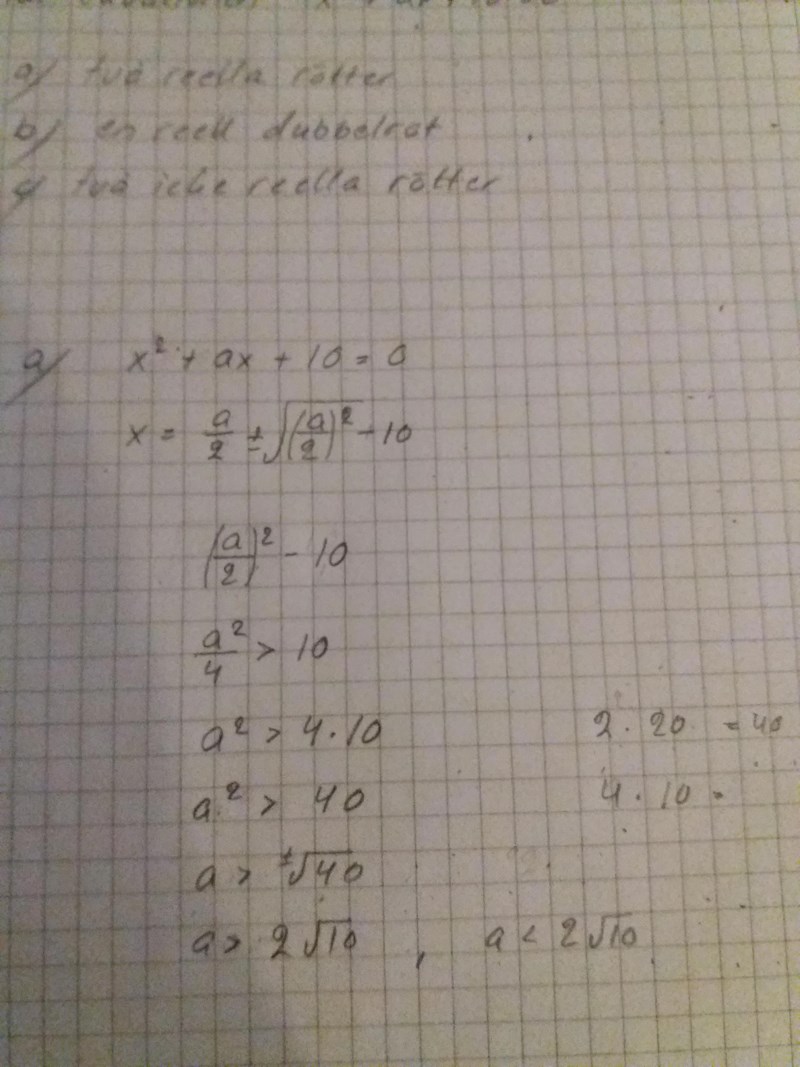 a) två reella rötter
b) en reell dubbelrot
c) två icke reella rötter
a) x² + ax + 10 = 0
x = a/2 ± √(a/2)² - 10
(a/2)² - 10
a²/4 > 10
a² > 4·10 2·20 = 40
a² > 40 4·10 =
a > ±√40
a > 2√10 , a < 2√10